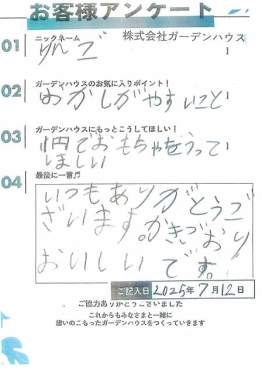 お客様アンケート
01 ニックネーム 株式会社ガーデンハウス
りんご
02 ガーデンハウスのお気に入りポイント!
おかしがやすいこと
03 ガーデンハウスにもっとこうしてほしい!
1円でおもちゃをうって
ほしい
04 最後に一言♬
いつもありがとうご
ざいます。かきごおり
おいしいです。
ご記入日 2025年7月12日
ご協力ありがとうございました
これからもみなさまと一緒に
想いのこもったガーデンハウスをつくっていきます